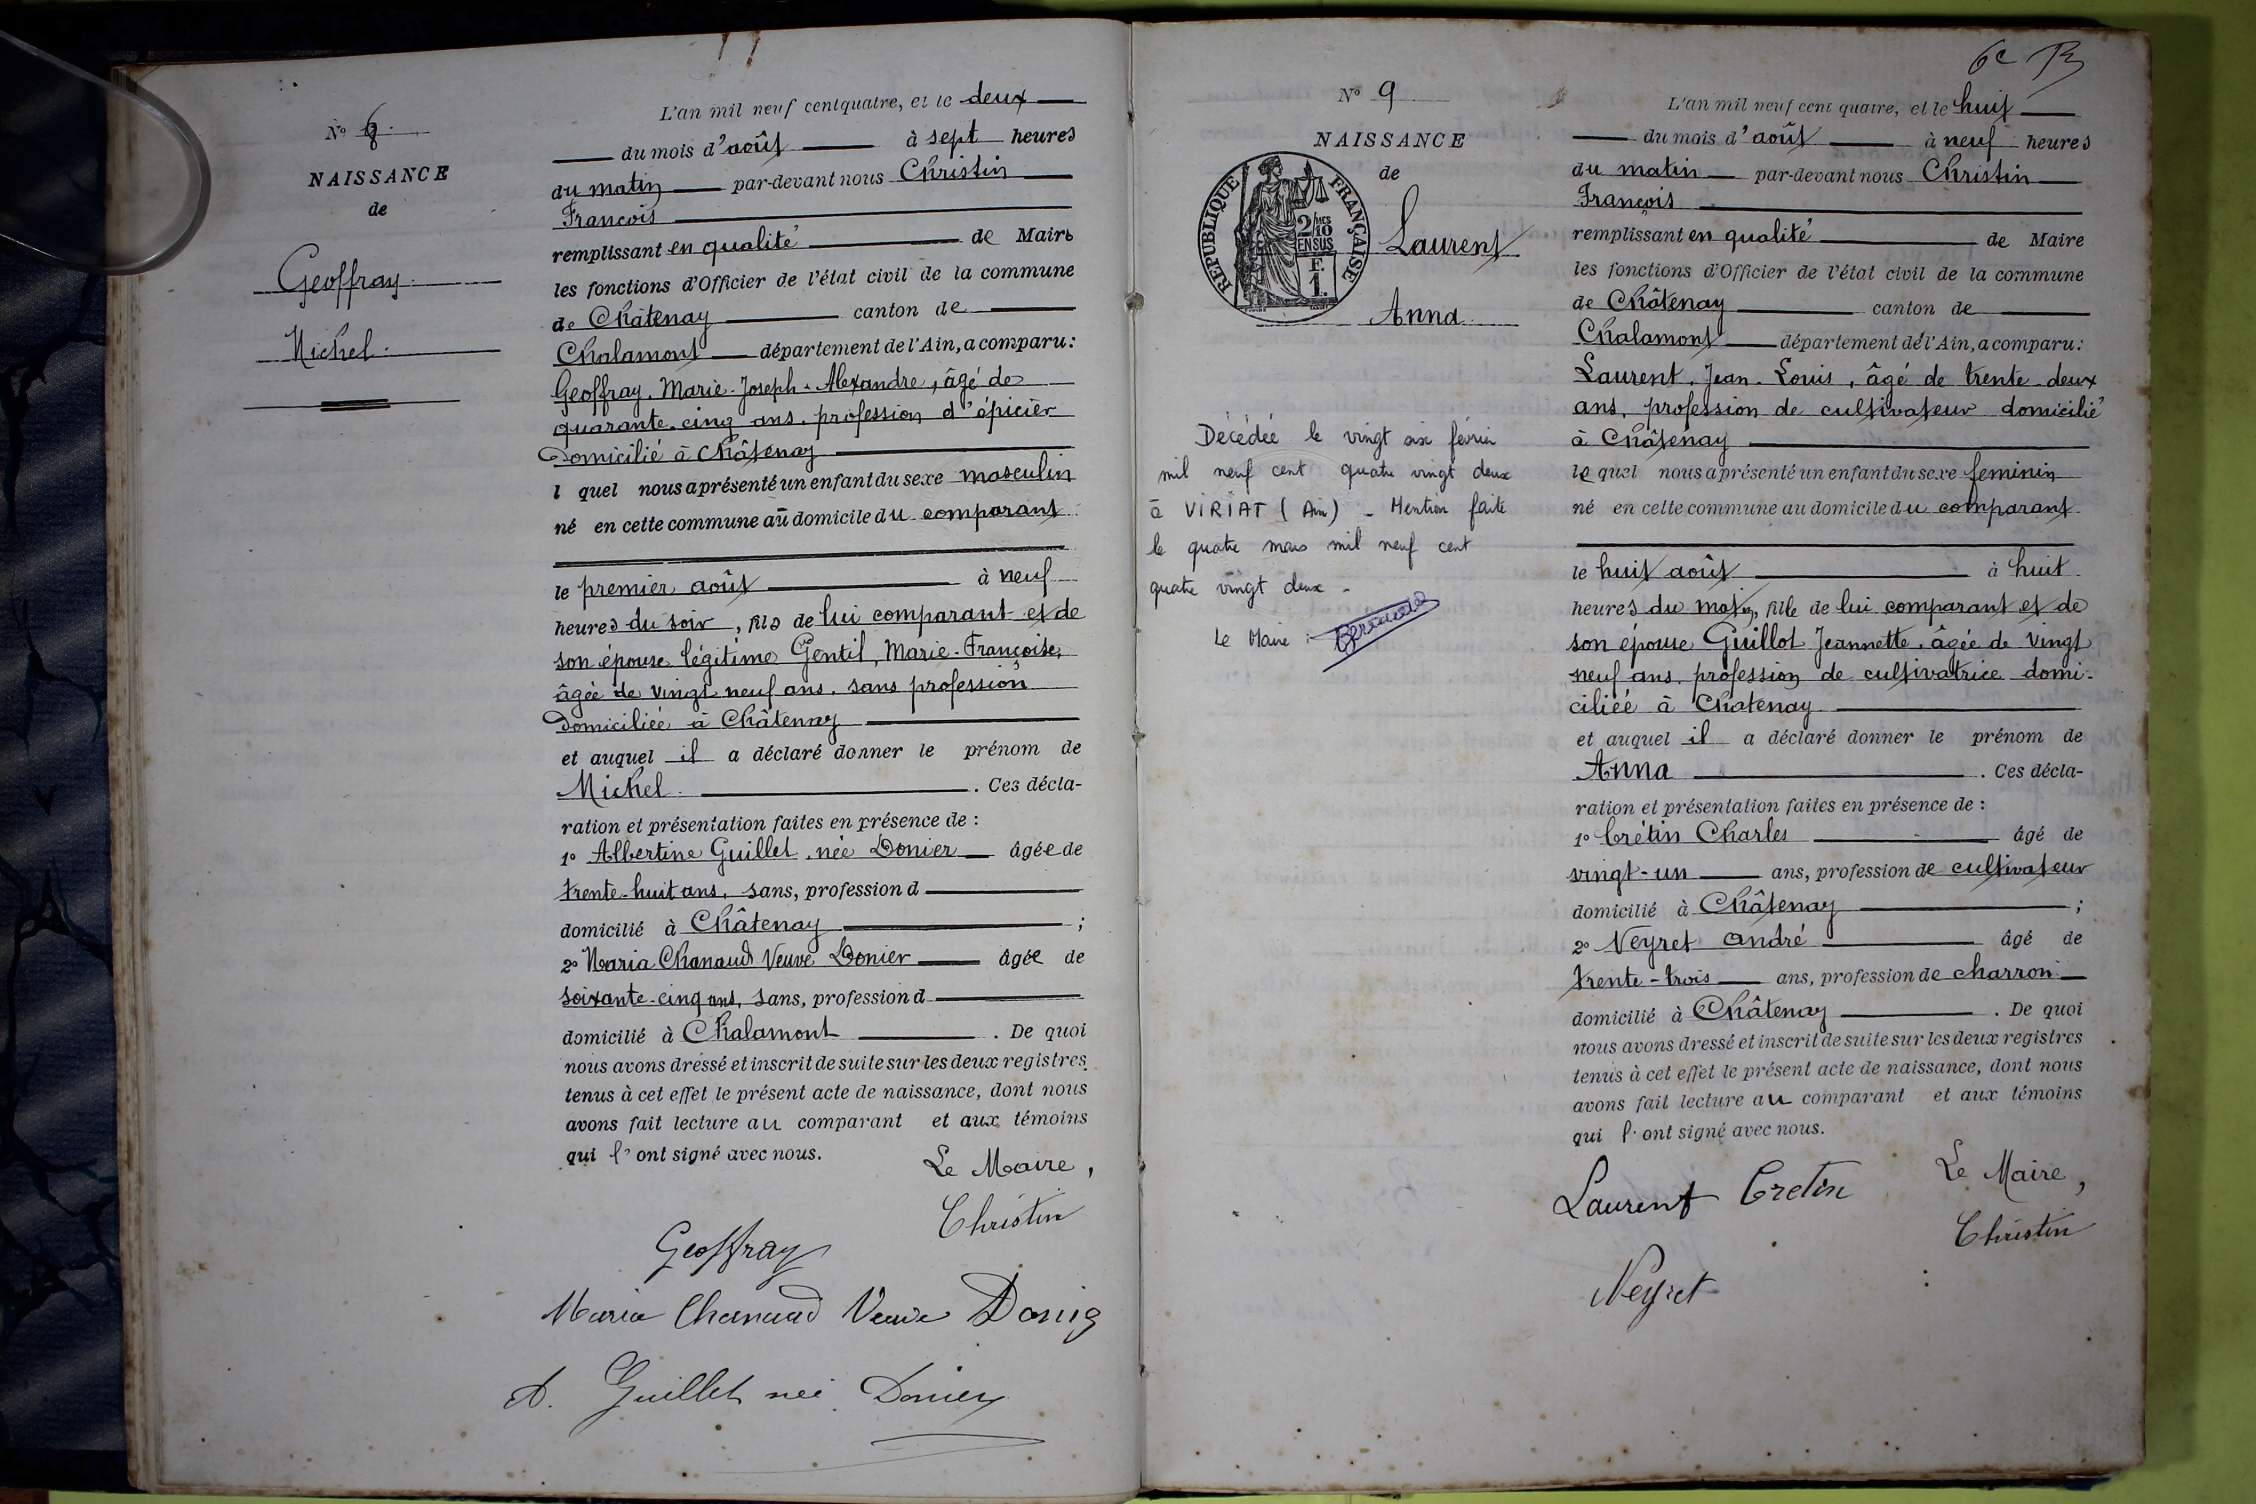 Nº 8.
NAISSANCE
de
Geoffray
Michel
L'an mil neuf cent quatre, et le deux
du mois d'août à sept heures
du matin par-devant nous Christin
François
remplissant en qualité de Maire
les fonctions d'Officier de l'état civil de la commune
de Châtenay canton de
Chalamont département de l'Ain, a comparu:
Geoffray. Marie-Joseph-Alexandre, âgé de
quarante-cinq ans. profession d'épicier
Domicilié à Châtenay
l quel nous a présenté un enfant du sexe masculin
né en cette commune au domicile du comparant
le premier août à neuf
heures du soir, fils de lui comparant et de
son épouse légitime Gentil, Marie-Françoise,
âgée de vingt neuf ans. sans profession
domiciliée à Châtenay
et auquel il a déclaré donner le prénom de
Michel. Ces décla-
ration et présentation faites en présence de:
1º Albertine Guillet, née Donier âgée de
trente-huit ans, sans, profession d
domicilié à Châtenay ;
2º Maria Chanaud Veuve Donier âgée de
soixante-cinq ans, sans, profession d
domicilié à Chalamont. De quoi
nous avons dressé et inscrit de suite sur les deux registres
tenus à cet effet le présent acte de naissance, dont nous
avons fait lecture au comparant et aux témoins
qui l'ont signé avec nous.
Le Maire,
Christin
Geoffray
Maria Chanaud Veuve
A. Guillet née Donier
6e
Nº 9
NAISSANCE
de
RÉPUBLIQUE FRANÇAISE
2/10 EN SUS
F. 1.
Laurent
Anna
Décédée le vingt six février
mil neuf cent quatre vingt deux
à VIRIAT (Ain) - Mention faite
le quatre mars mil neuf cent
quatre vingt deux -
Le Maire :
L'an mil neuf cent quatre, et le huit
du mois d'août à neuf heures
du matin par-devant nous Christin
François
remplissant en qualité de Maire
les fonctions d'Officier de l'état civil de la commune
de Châtenay canton de
Chalamont département de l'Ain, a comparu:
Laurent. Jean-Louis, âgé de trente-deux
ans, profession de cultivateur domicilié
à Châtenay
lequel nous a présenté un enfant du sexe feminin
né en cette commune au domicile du comparant
le huit août à huit
heures du matin, fille de lui comparant et de
son épouse Guillot Jeannette, âgée de vingt
neuf ans, profession de cultivatrice domi-
ciliée à Chatenay
et auquel il a déclaré donner le prénom de
Anna. Ces décla-
ration et présentation faites en présence de:
1º Crétin Charles âgé de
vingt-un ans, profession de cultivateur
domicilié à Châtenay ;
2º Neyret André âgé de
trente-trois ans, profession de charron
domicilié à Châtenay. De quoi
nous avons dressé et inscrit de suite sur les deux registres
tenus à cet effet le présent acte de naissance, dont nous
avons fait lecture au comparant et aux témoins
qui l'ont signé avec nous.
Le Maire,
Laurent Cretin
Christin
Neyret